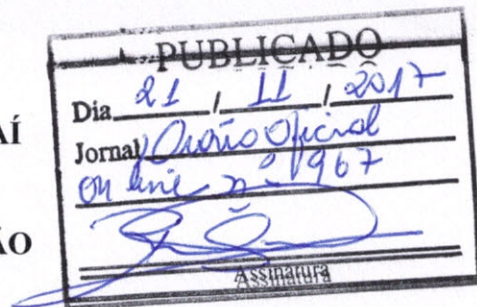 PUBLICADO
Dia 21 / 11 / 2017
AÍ
Jornal Diário Oficial
on line nº 967
ÃO
Assinatura